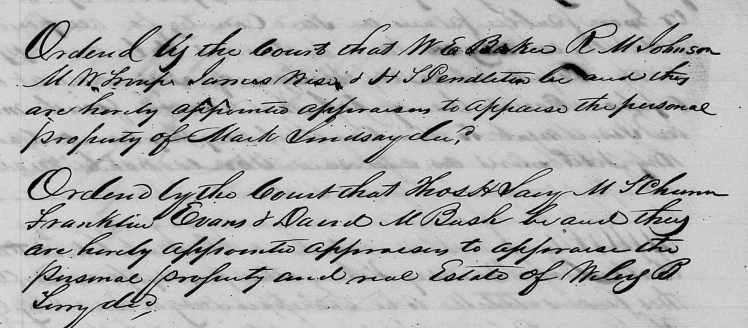 Ordered by the Court that W E Baker R M Johnson
M W James Wise & H S Pendleton be and they
are hereby appointed appraisers to appraise the personal
property of Mark Lindsay decd
Ordered by the Court that Thos H M S Chunn
Franklin Evans & David M Bush be and they
are hereby appointed appraisers to appraise the
personal property and real Estate of Wiley B
Terry decd